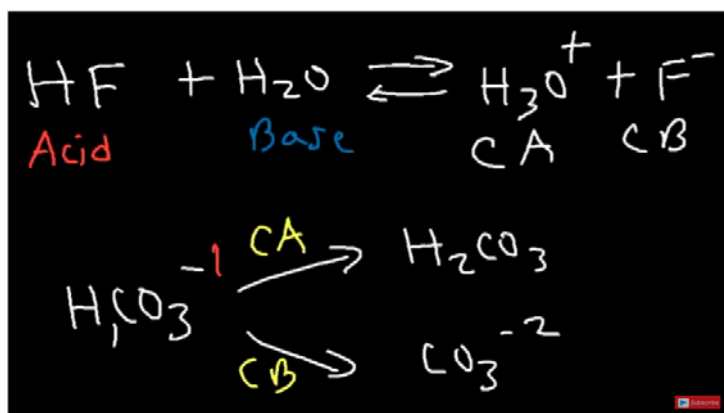 HF + H₂O ⇌ H₃O⁺ + F⁻
Acid Base CA CB
CA H₂CO₃
H₁CO₃⁻¹
CB CO₃⁻²
Subscribe